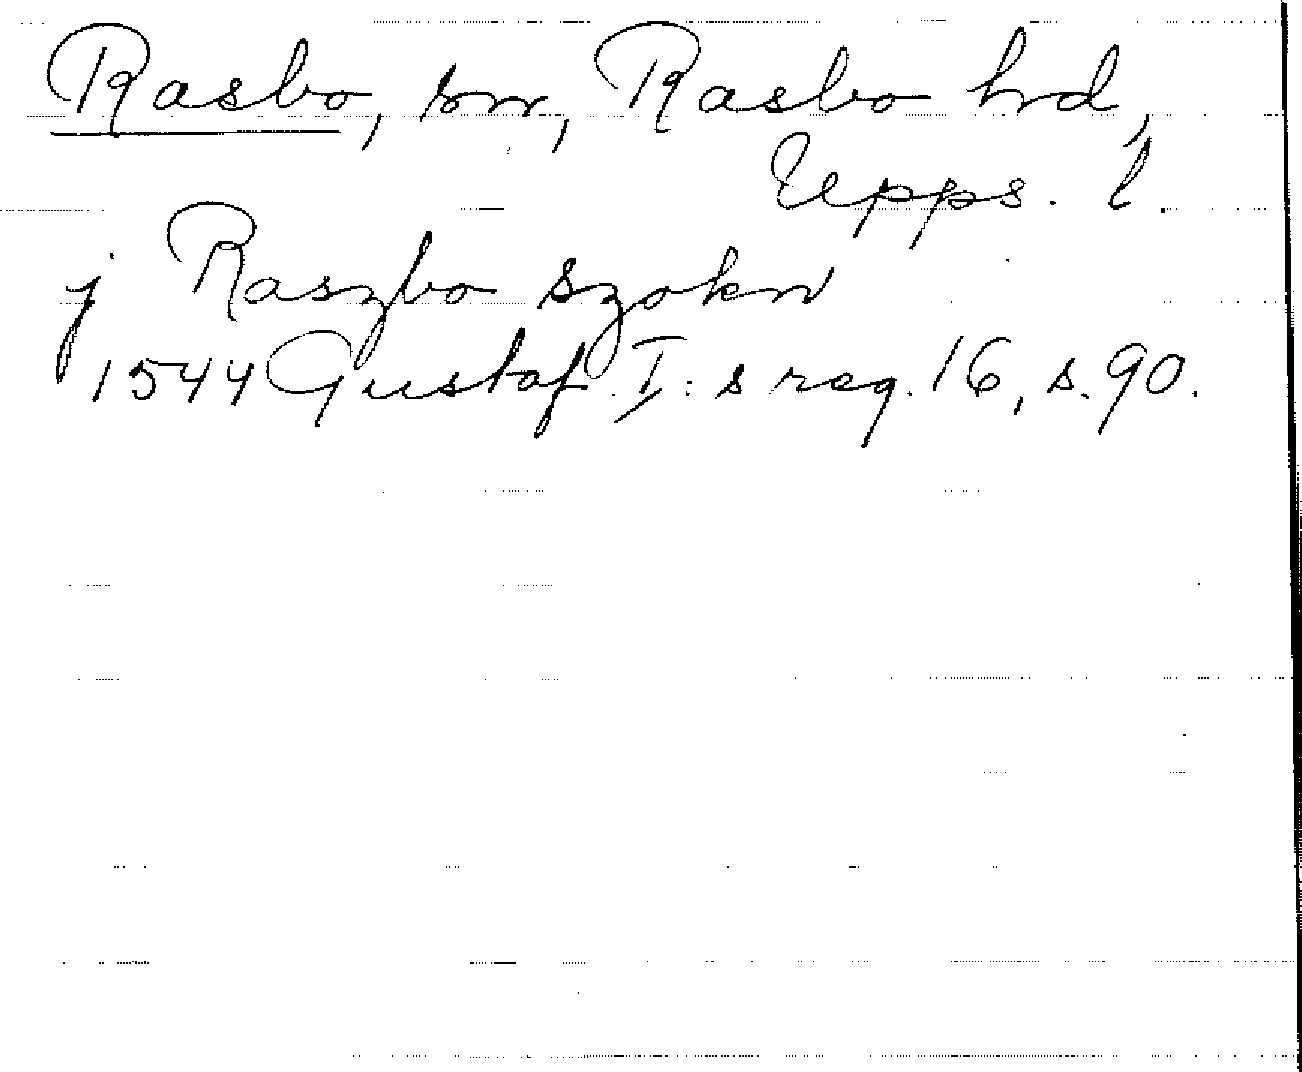 Rasbo, sn, Rasbo hrd,
Upps. l.
j Raszbo szokn
1544 Gustaf I:s reg. 16, s. 90.